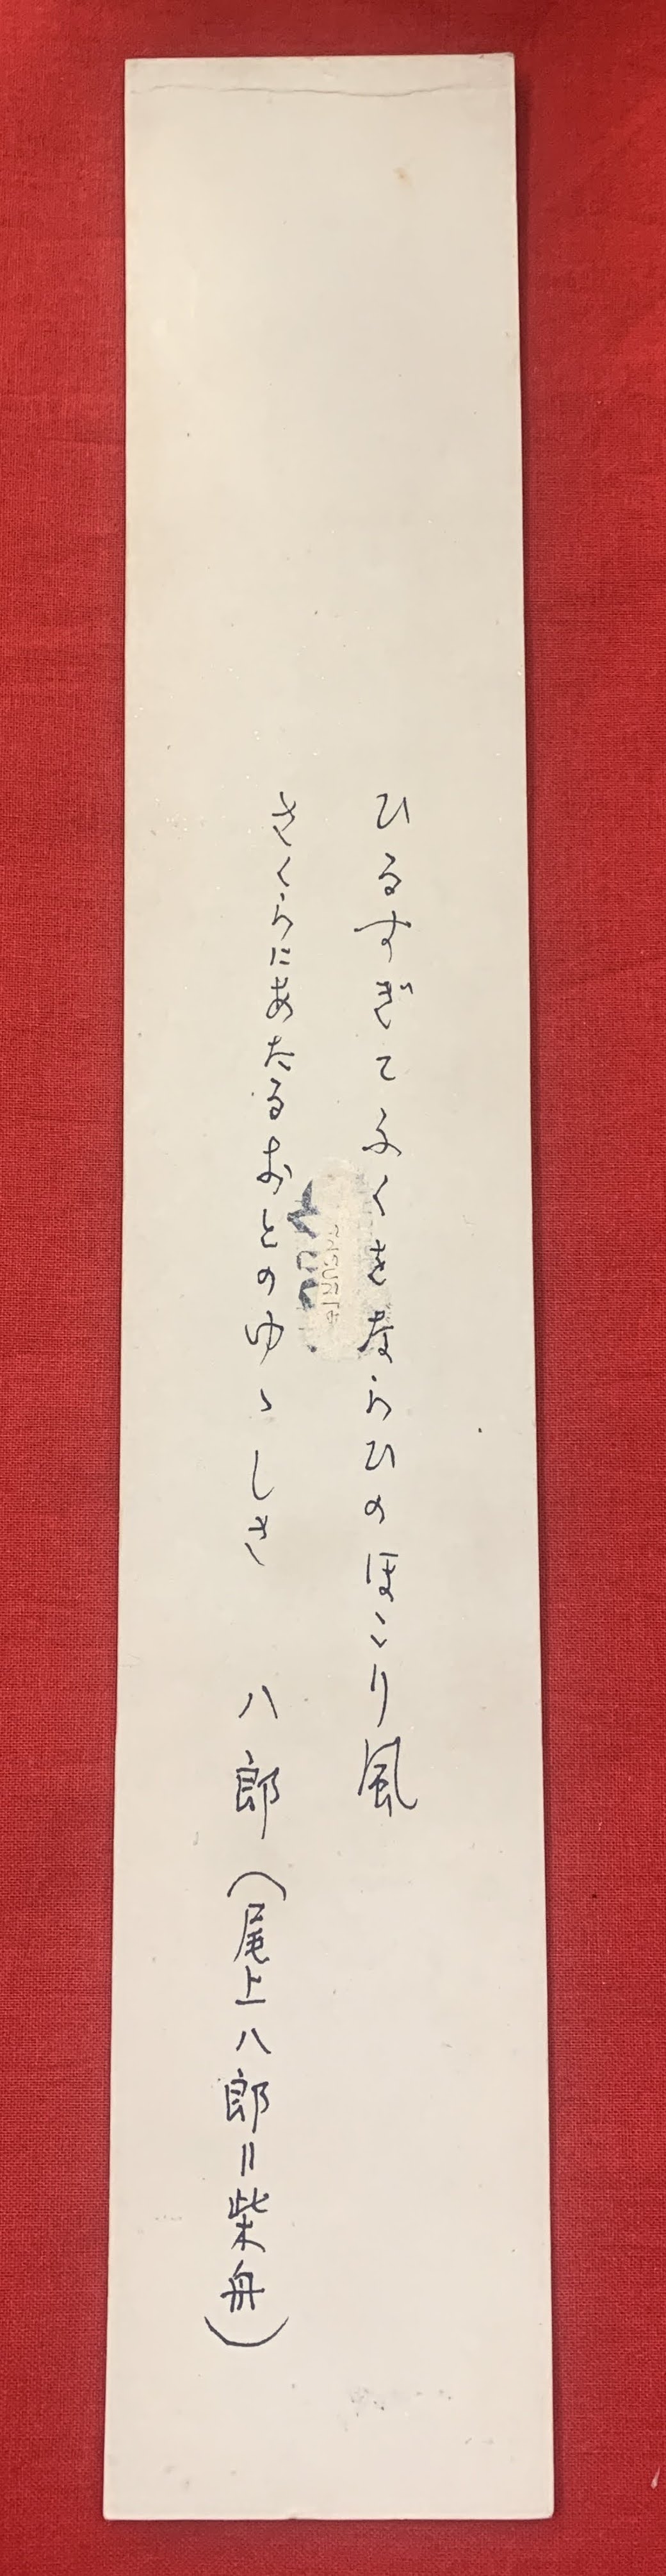 ひるすぎてふくをならひのほこり風
さくらにあたるおとのゆゝしさ 八郎(尾上八郎=柴舟)